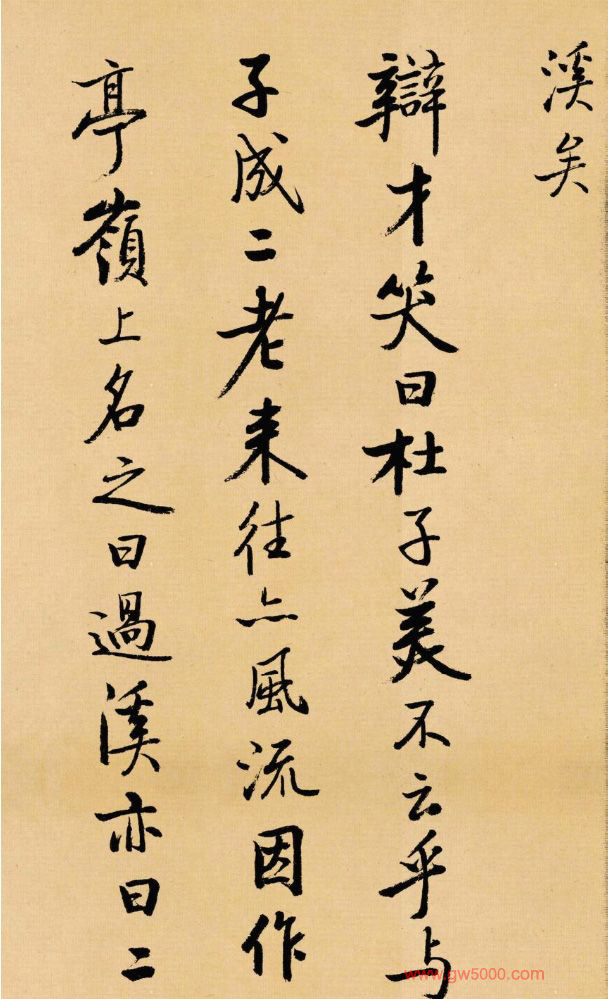 溪矣
辯才笑曰杜子美不云乎与
子成二老来往亦風流因作
亭嶺上名之曰過溪亦曰二
www.gw5000.com